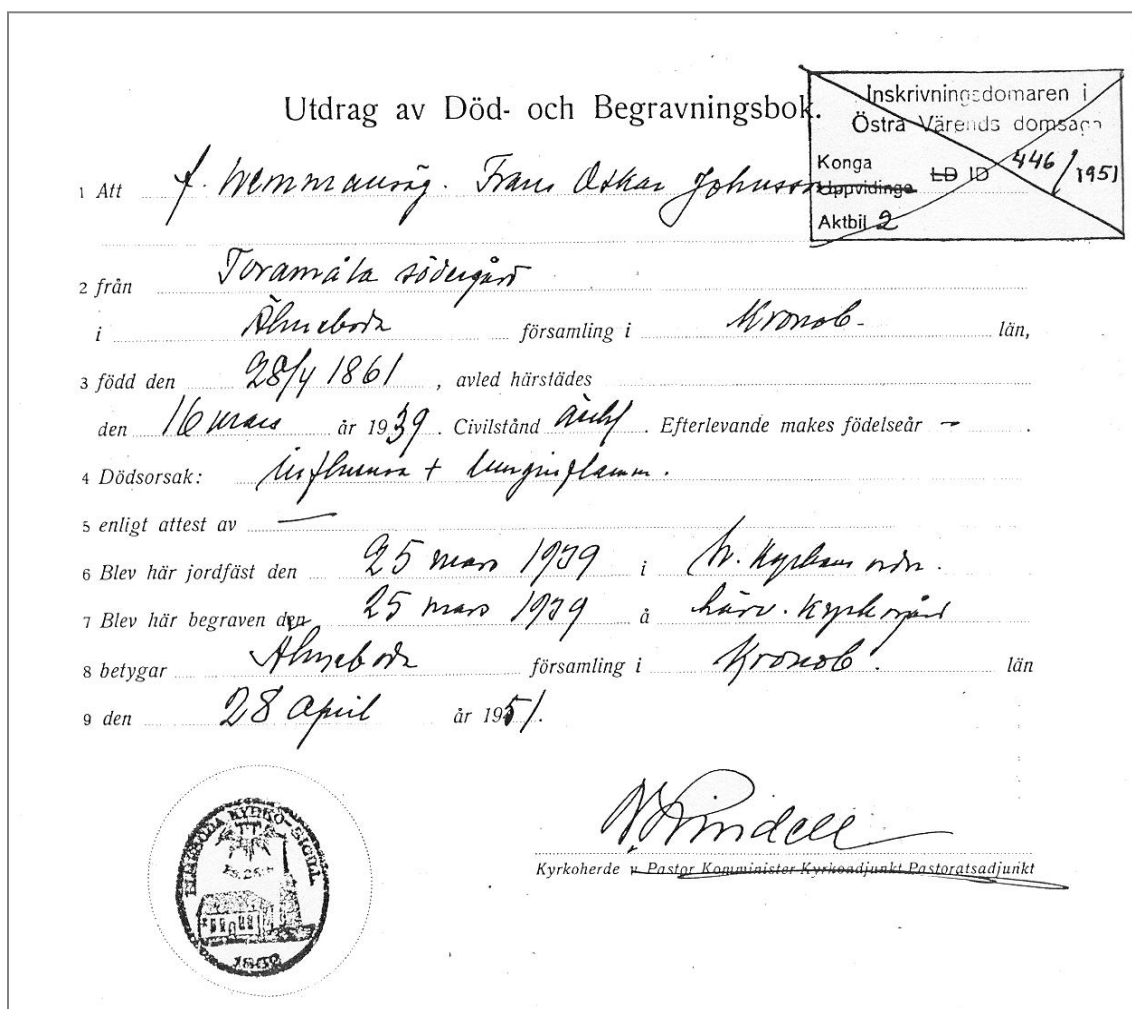 Utdrag av Död- och Begravningsbok.
Inskrivningsdomaren i
Östra Värends domsaga
Konga
Uppvidinge LD ID 446/1951
Aktbil 2
1 Att f. hemmansäg. Frans Oskar Johnsson
2 från Toramåla södergård
i Älmeboda församling i Kronob. län,
3 född den 28/4 1861, avled härstädes
den 16 mars år 1939. Civilstånd änkl. Efterlevande makes födelseår –.
4 Dödsorsak: influensa + lunginflamm.
5 enligt attest av —
6 Blev här jordfäst den 25 mars 1939 i Sv. Kyrkans ordn.
7 Blev här begraven den 25 mars 1939 å härv. kyrkogård
8 betygar Älmeboda församling i Kronob. län
9 den 28 april år 1951.
Lindell
Kyrkoherde v. Pastor Komminister Kyrkoadjunkt Pastoratsadjunkt
ELMEBODA KYRKO-SIGILL